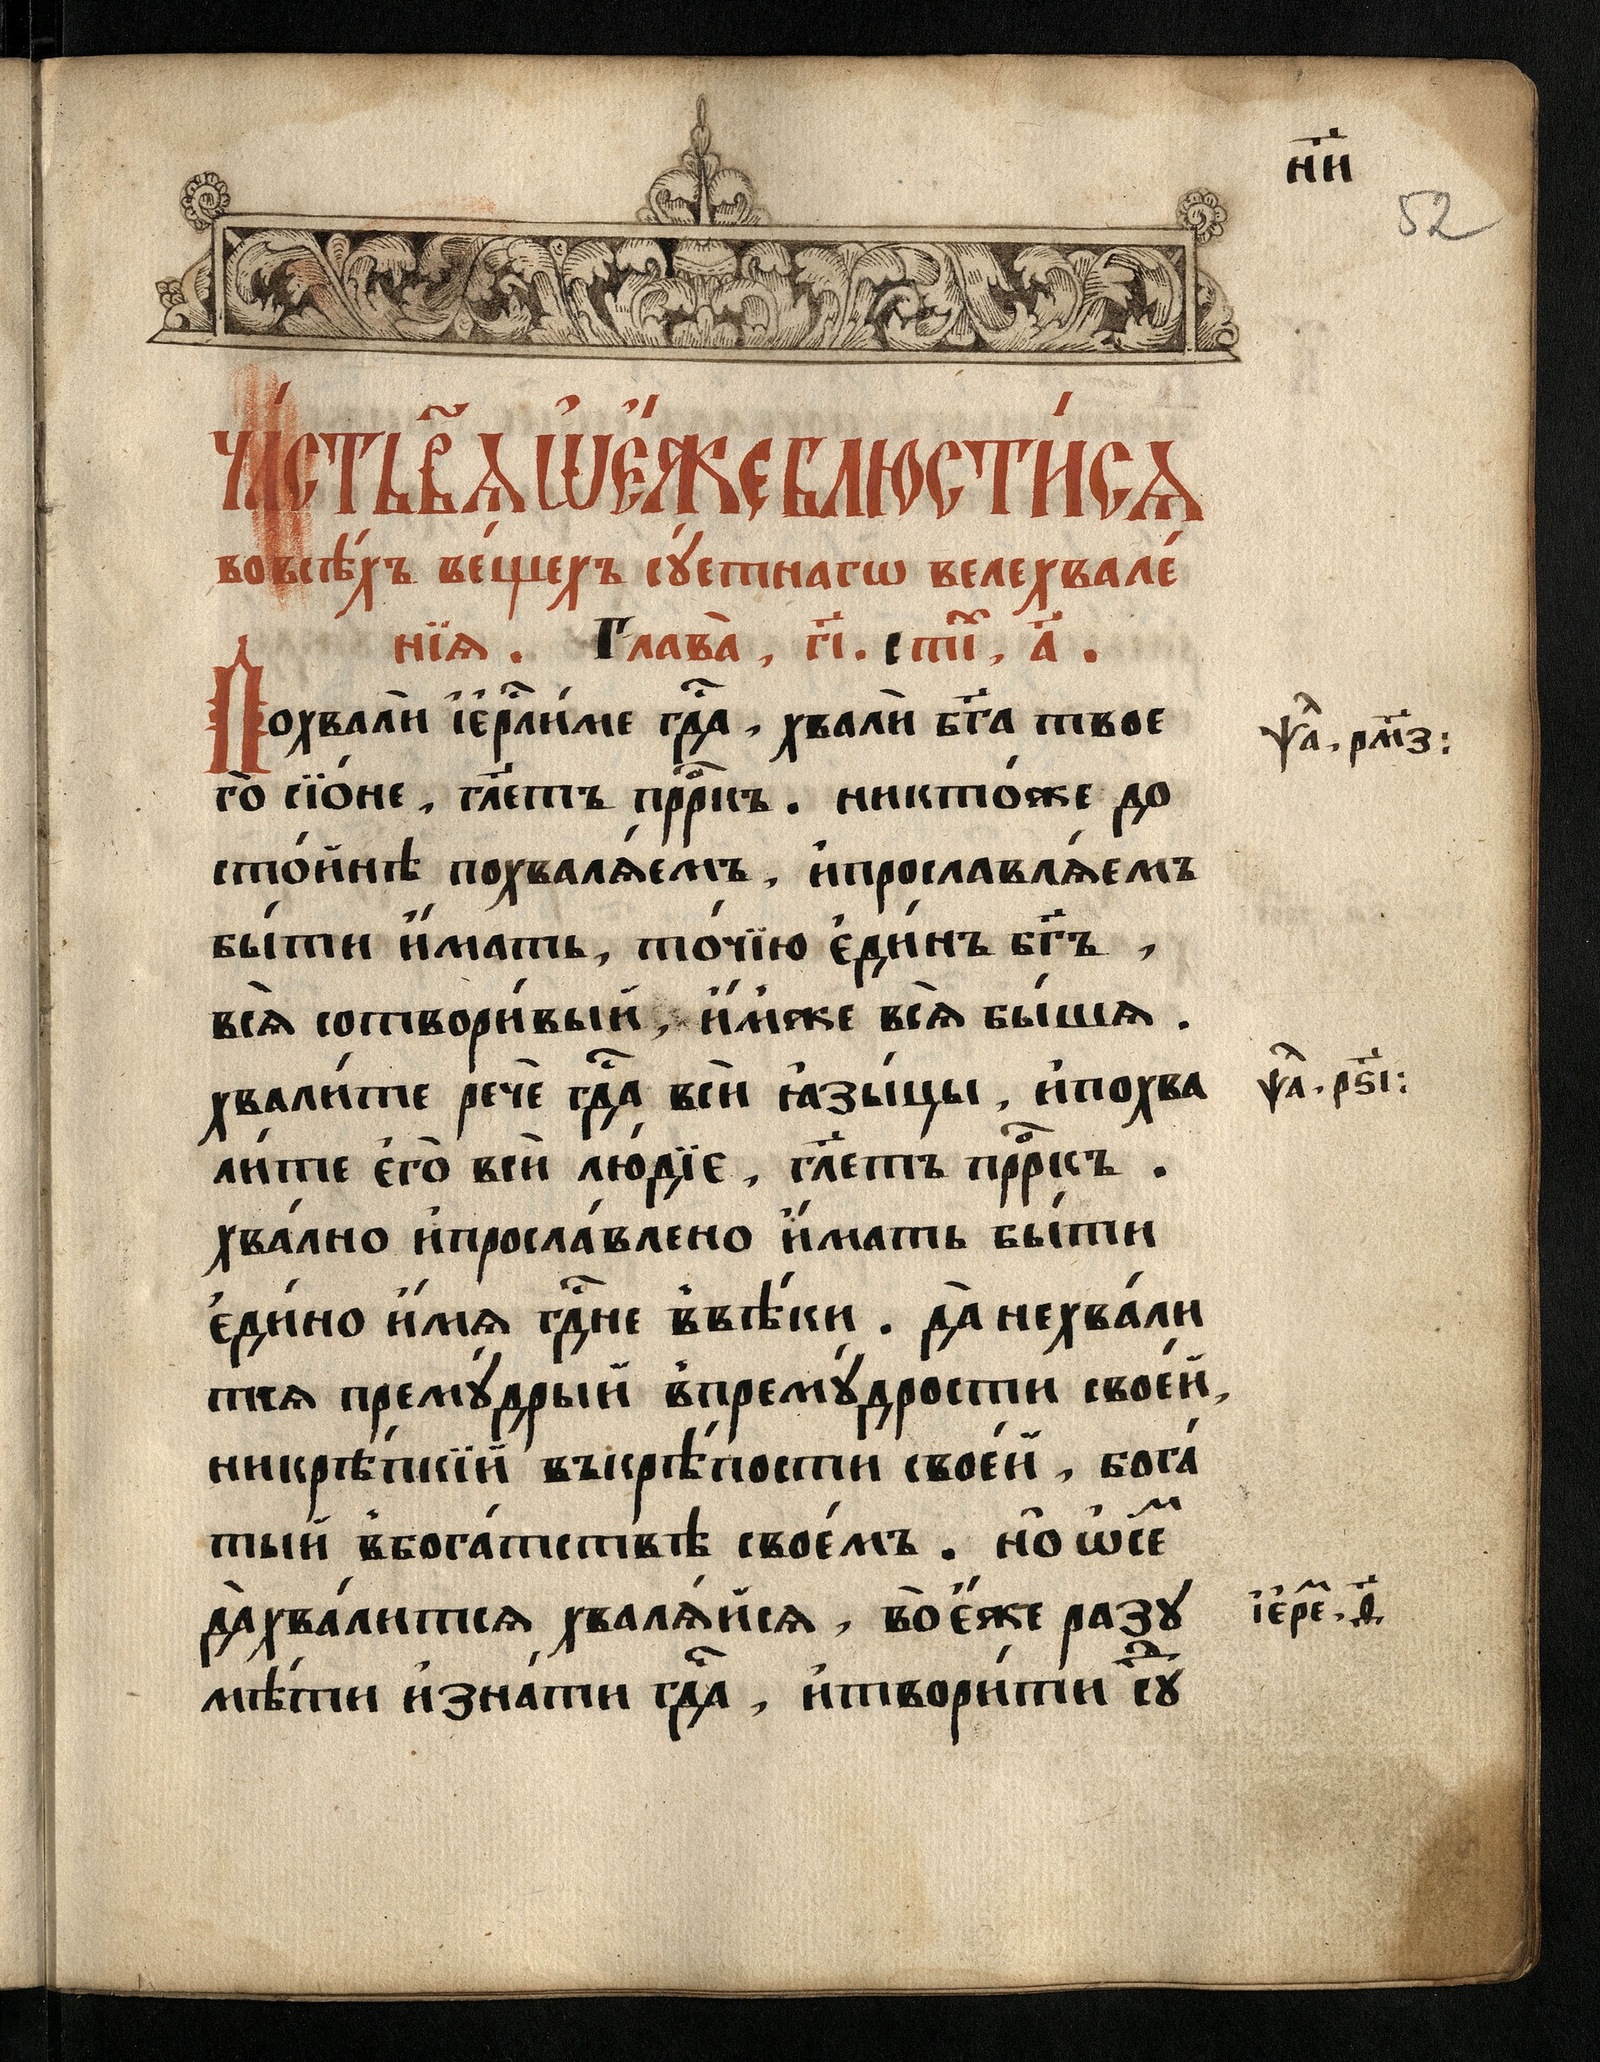 н҃и
52
Ча́сть в҃я ѡ҆ е҆́же блюсти́ся
во всѣ́хъ ве́щехъ сꙋ́етнагѡ велехвале́
нїѧ . Глава̀ , г҃і . стⷯі , а҃ .
Похвалѝ і҆ерⷭ҇ли́ме гдⷭ҇а , хвалѝ бг҃а твое
го̀ сїо́не , гл҃етъ прⷪ҇ркъ . никто́же до
сто́йнѣ похвалѧ́емъ , и҆прославлѧ́емъ
бы́ти и҆́мать , то́чїю є҆ди́нъ бг҃ъ ,
всѧ̀ сотвори́вый , и҆́мже всѧ̀ бы́шѧ .
хвали́те речѐ гдⷭ҇а всѝ ꙗ҆зы́цы , и҆похва
ли́те є҆го̀ всѝ лю́дїе , гл҃етъ прⷪ҇ркъ .
хва́лно и҆просла́влено и҆́мать бы́ти
є҆ди́но и҆́мѧ гдⷭ҇не в̾вѣ́ки . да̀ нехва́ли
тсѧ премꙋ́дрый в̾премꙋ́дрости свое́й ,
никрѣ́пкїй въкрѣ́пости свое́й , бога́
тый в̾бога́тствѣ свое́мъ . но̀ ѡ҆сеⷨ
да̀хва́литсѧ хвалѧ́йсѧ , во̀ є҆́же разꙋ
мѣ́ти и҆зна́ти гдⷭ҇а , и҆твори́ти сꙋⷣ
ѱⷧ҇а , рм҃з :
ѱⷧ҇а , рѕ҃і :
і҆ереⷨ , д҃ ,